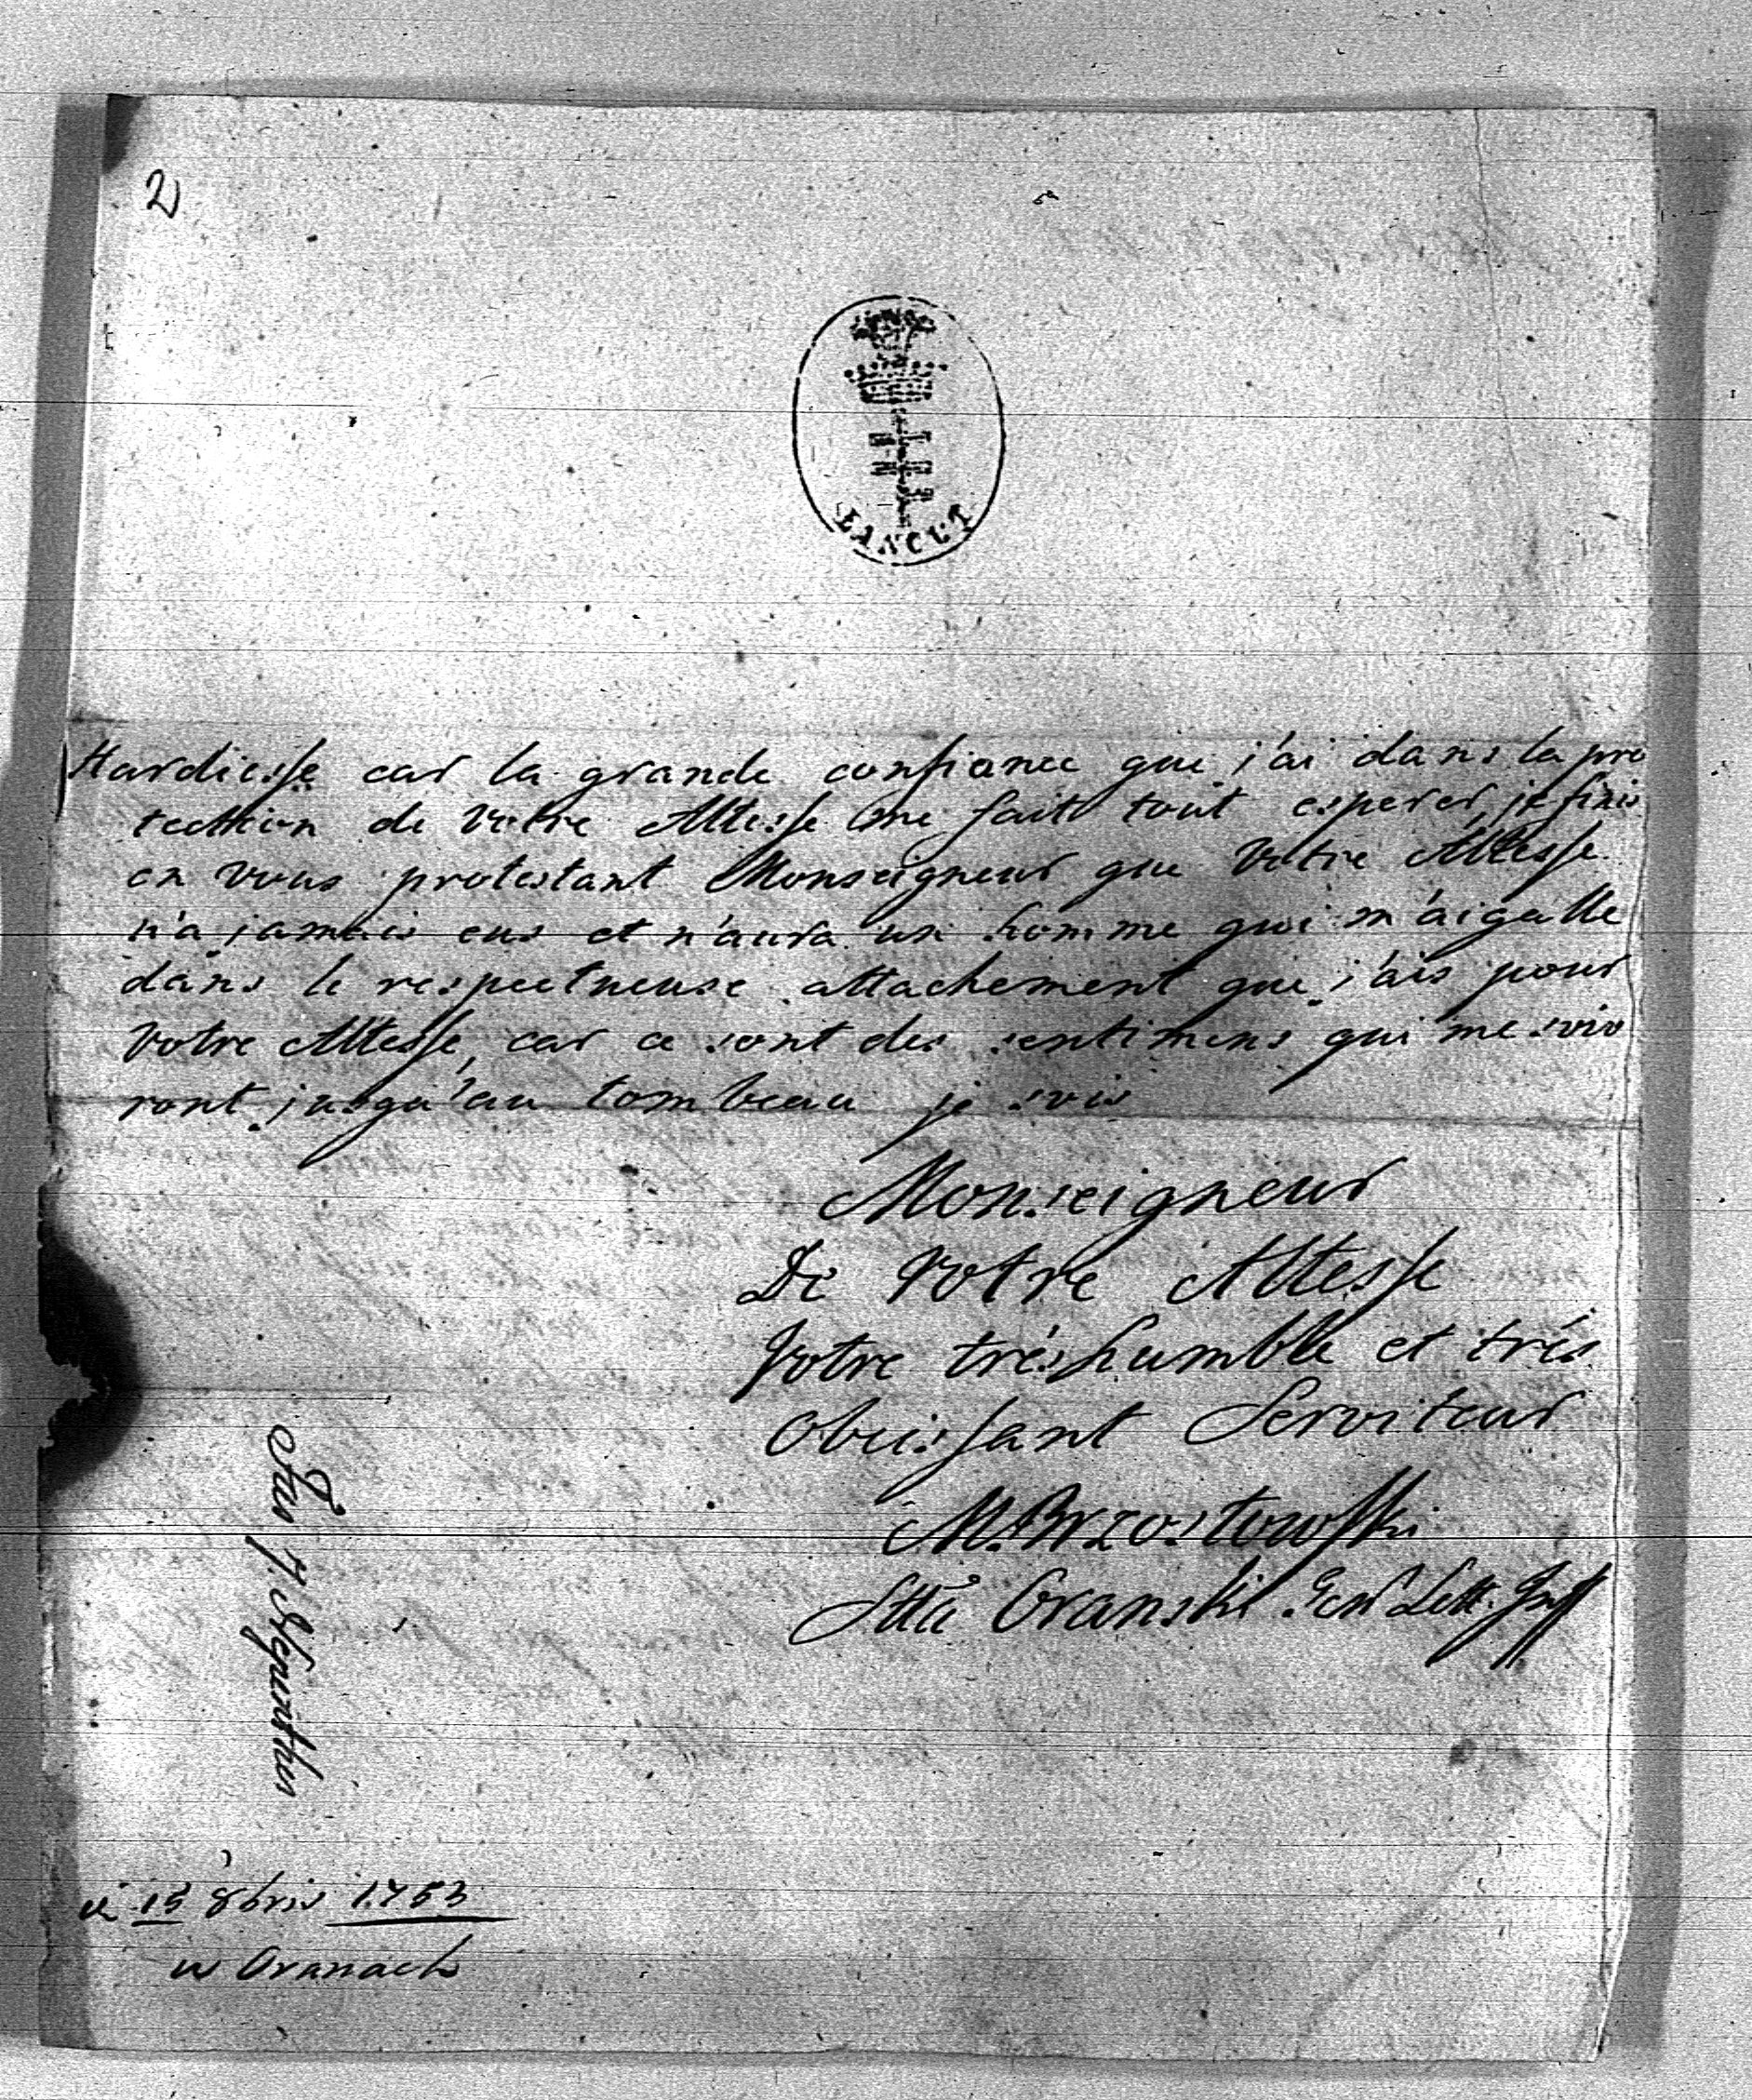 2
ŁAŃCUT
Hardiesse car la grande confiance que j'ai dans la pro
tecttion de Votre Altesse me fait tout esperer, je finis
en vous protestant Monseigneur que Votre Altesse
n'a jamais eus et n'aura un homme qui m'aigalle
dans le respectueuse attachement que j'ais pour
Votre Altesse, car ce sont des sentimens qui me sviv
ront jusqu'au tombeau je svis
Monseigneur
De Votre Altesse
Votre trés humble et trés
Obeissant Serviteur
M. Brzostowski
Stta Oranski Gen Lett.
d 15 8bris 1753
w Oranach